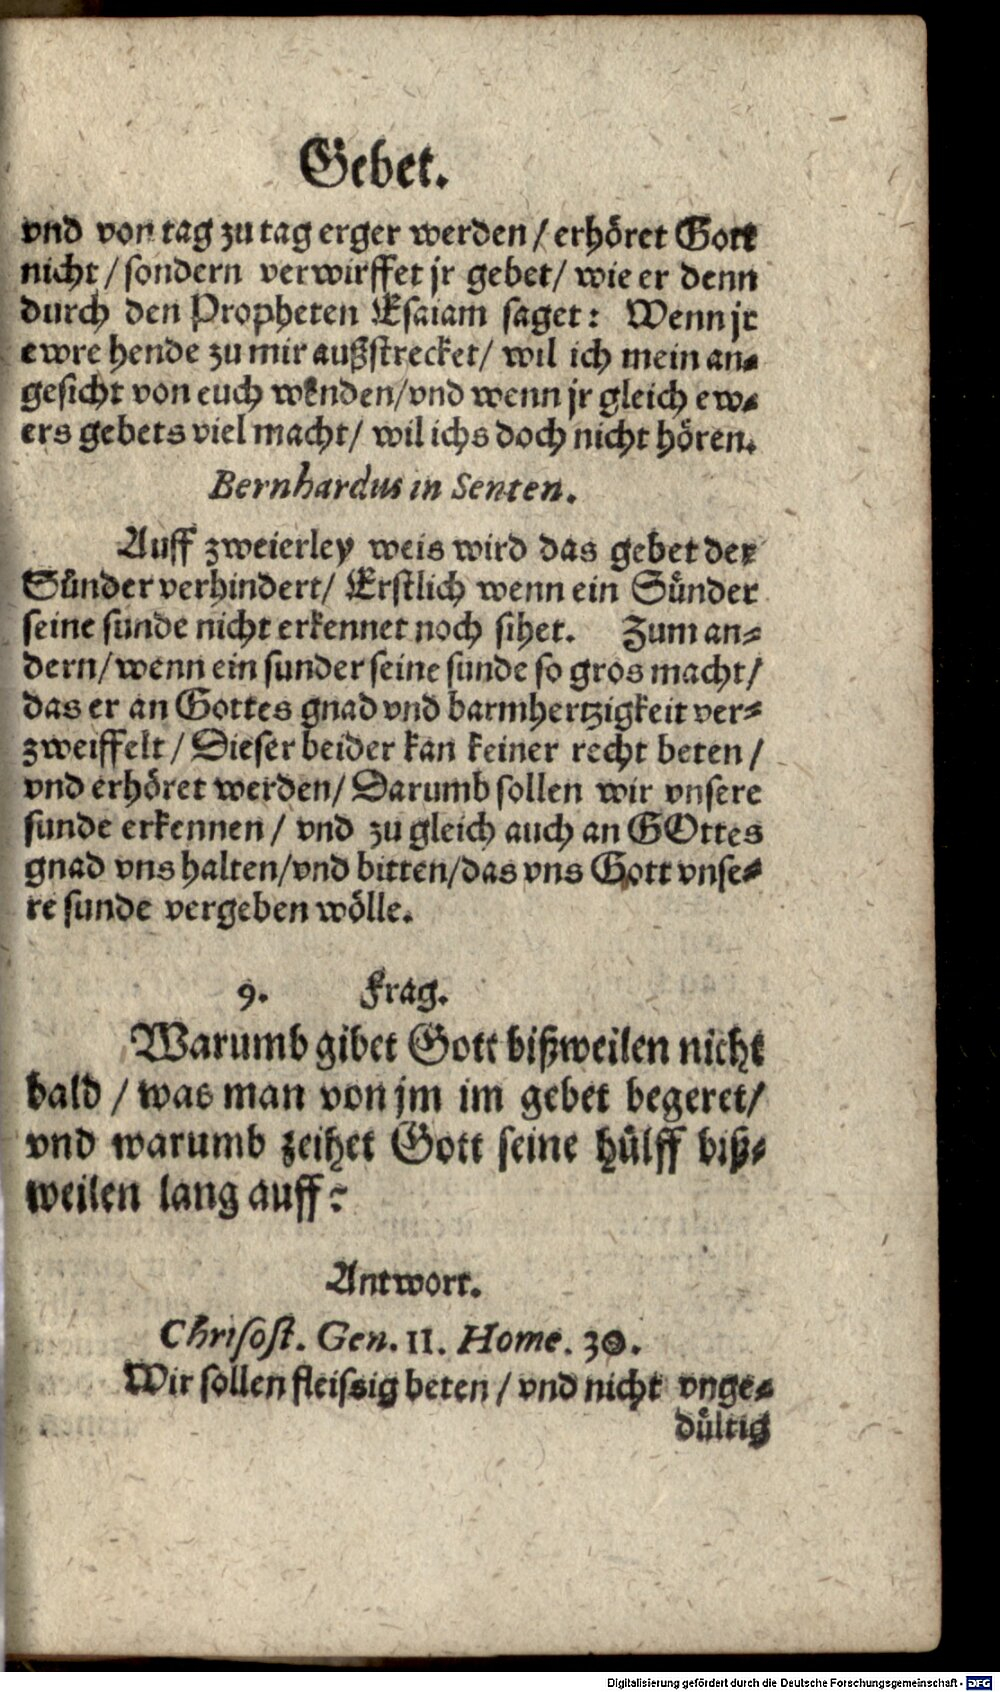 Gebet.
vnd von tag zu tag erger werden / erhöret Gott
nicht / sondern verwirffet jr gebet / wie er denn
durch den Propheten Esaiam saget: Wenn jr
ewre hende zu mir außstrecket / wil ich mein an-
gesicht von euch wenden / vnd wenn jr gleich ew-
ers gebets viel macht / wil ichs doch nicht hören.
Bernhardus in Senten.
Auff zweierley weis wird das gebet der
Sünder verhindert / Erstlich wenn ein Sünder
seine sunde nicht erkennet noch sihet. Zum an-
dern / wenn ein sunder seine sunde so gros macht /
das er an Gottes gnad vnd barmhertzigkeit ver-
zweiffelt / Dieser beider kan keiner recht beten /
vnd erhöret werden / Darumb sollen wir vnsere
sunde erkennen / vnd zu gleich auch an GOttes
gnad vns halten / vnd bitten / das vns Gott vnse-
re sunde vergeben wölle.
9. Frag.
Warumb gibet Gott bißweilen nicht
bald / was man von jm im gebet begeret /
vnd warumb zeihet Gott seine hülff biß-
weilen lang auff?
Antwort.
Chrisost. Gen. 11. Home. 30.
Wir sollen fleissig beten / vnd nicht vnge-
dültig
Digitalisierung gefördert durch die Deutsche Forschungsgemeinschaft - DFG